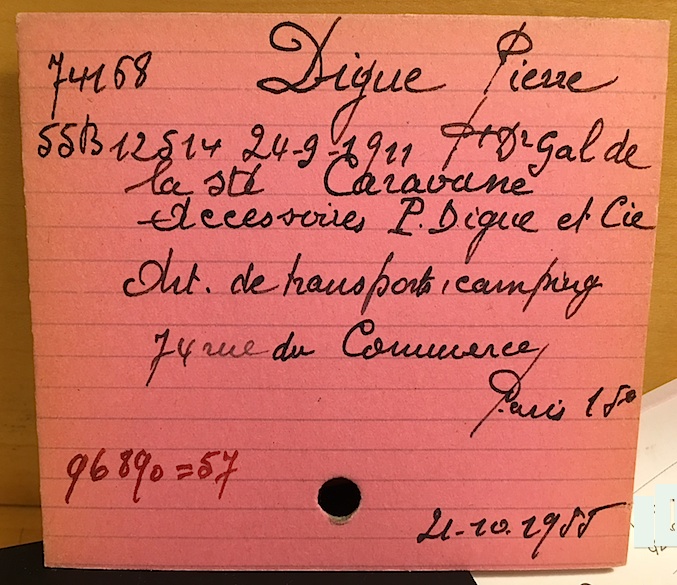 74168 Digue Pierre
55B12514 24-9-1911 Pt Dr Gal de
la sté Caravane
Accessoires P. Digue et Cie
Art. de transports, camping
74 rue du Commerce
Paris 15e
96890=57
21-10-1955